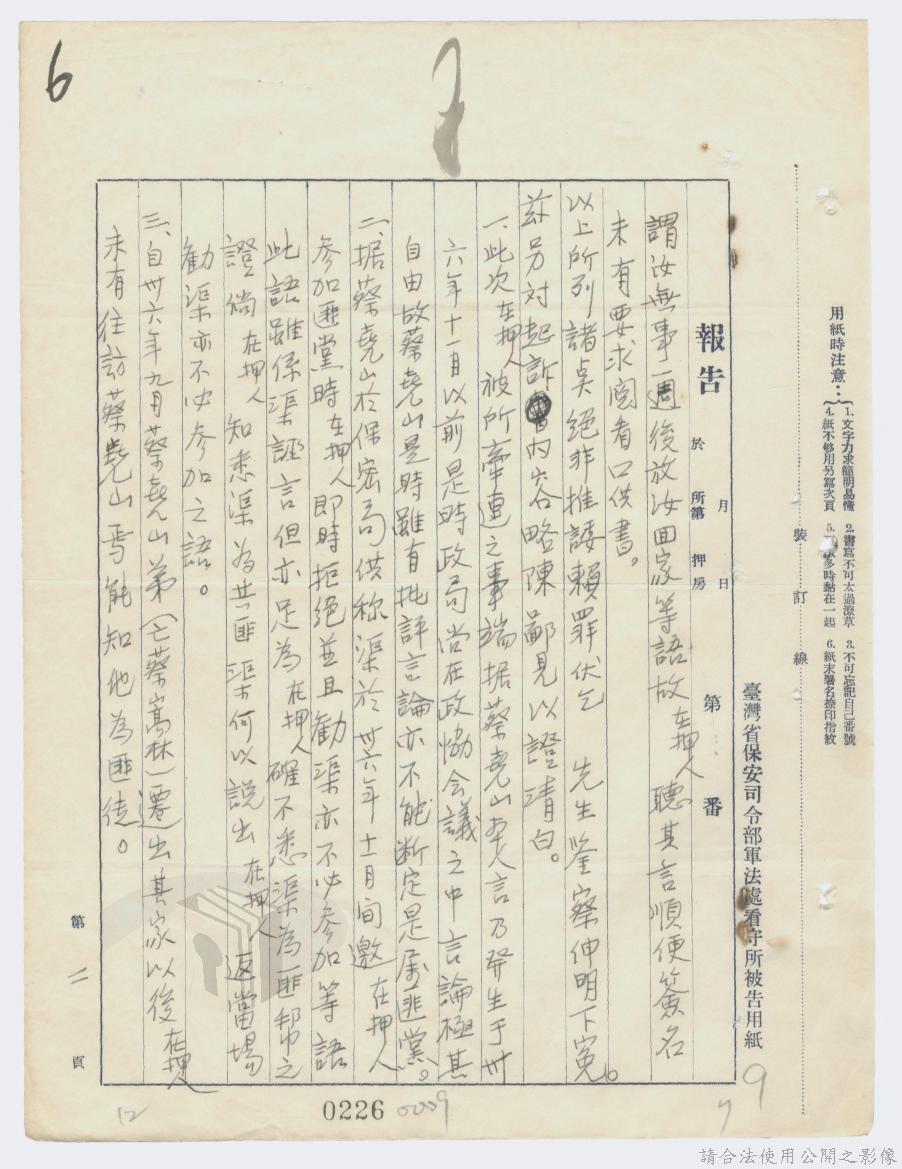 6
用紙時注意：
1. 文字力求簡明易懂
2. 書寫不可太過潦草
3. 不可忘記自己番號
4. 紙不够用另寫次頁
5. 多時黏在一起
6. 紙末署名捺印指紋
裝訂線
臺灣省保安司令部軍法處看守所被告用紙
報告 於 所第 押房 月 日 第 番
謂汝無事一週後放汝回家等語故在押人聽其言順便簽名
未有要求閱看口供書。
以上所列諸點絕非推諉賴罪伏乞 先生鑒察伸明下冤。
茲另对起訴內容略陳鄙見以證清白。
一、此次在押人被所牽連之事端据蔡堯山本人言乃發生于卅
六年十一月以前是時政局尚在政協会議之中言論極其
自由故蔡堯山是時雖有批評言論亦不能断定是屬匪黨。
二、据蔡堯山於保密局供称渠於卅六年十一月间邀在押人
参加匪黨時在押人即時拒絕並且勸渠亦不必参加等語
此語雖係渠誣言但亦足為在押人確不悉渠為匪幇之
證倘在押人知悉渠為共匪渠何以說出在押人返當場
勸渠亦不必参加之語。
三、自卅六年九月蔡堯山弟(亡蔡嵩林)遷出其家以後在押人
未有往訪蔡堯山焉能知他為匪徒。
第二頁
12
0226
0009
9
請合法使用公開之影像